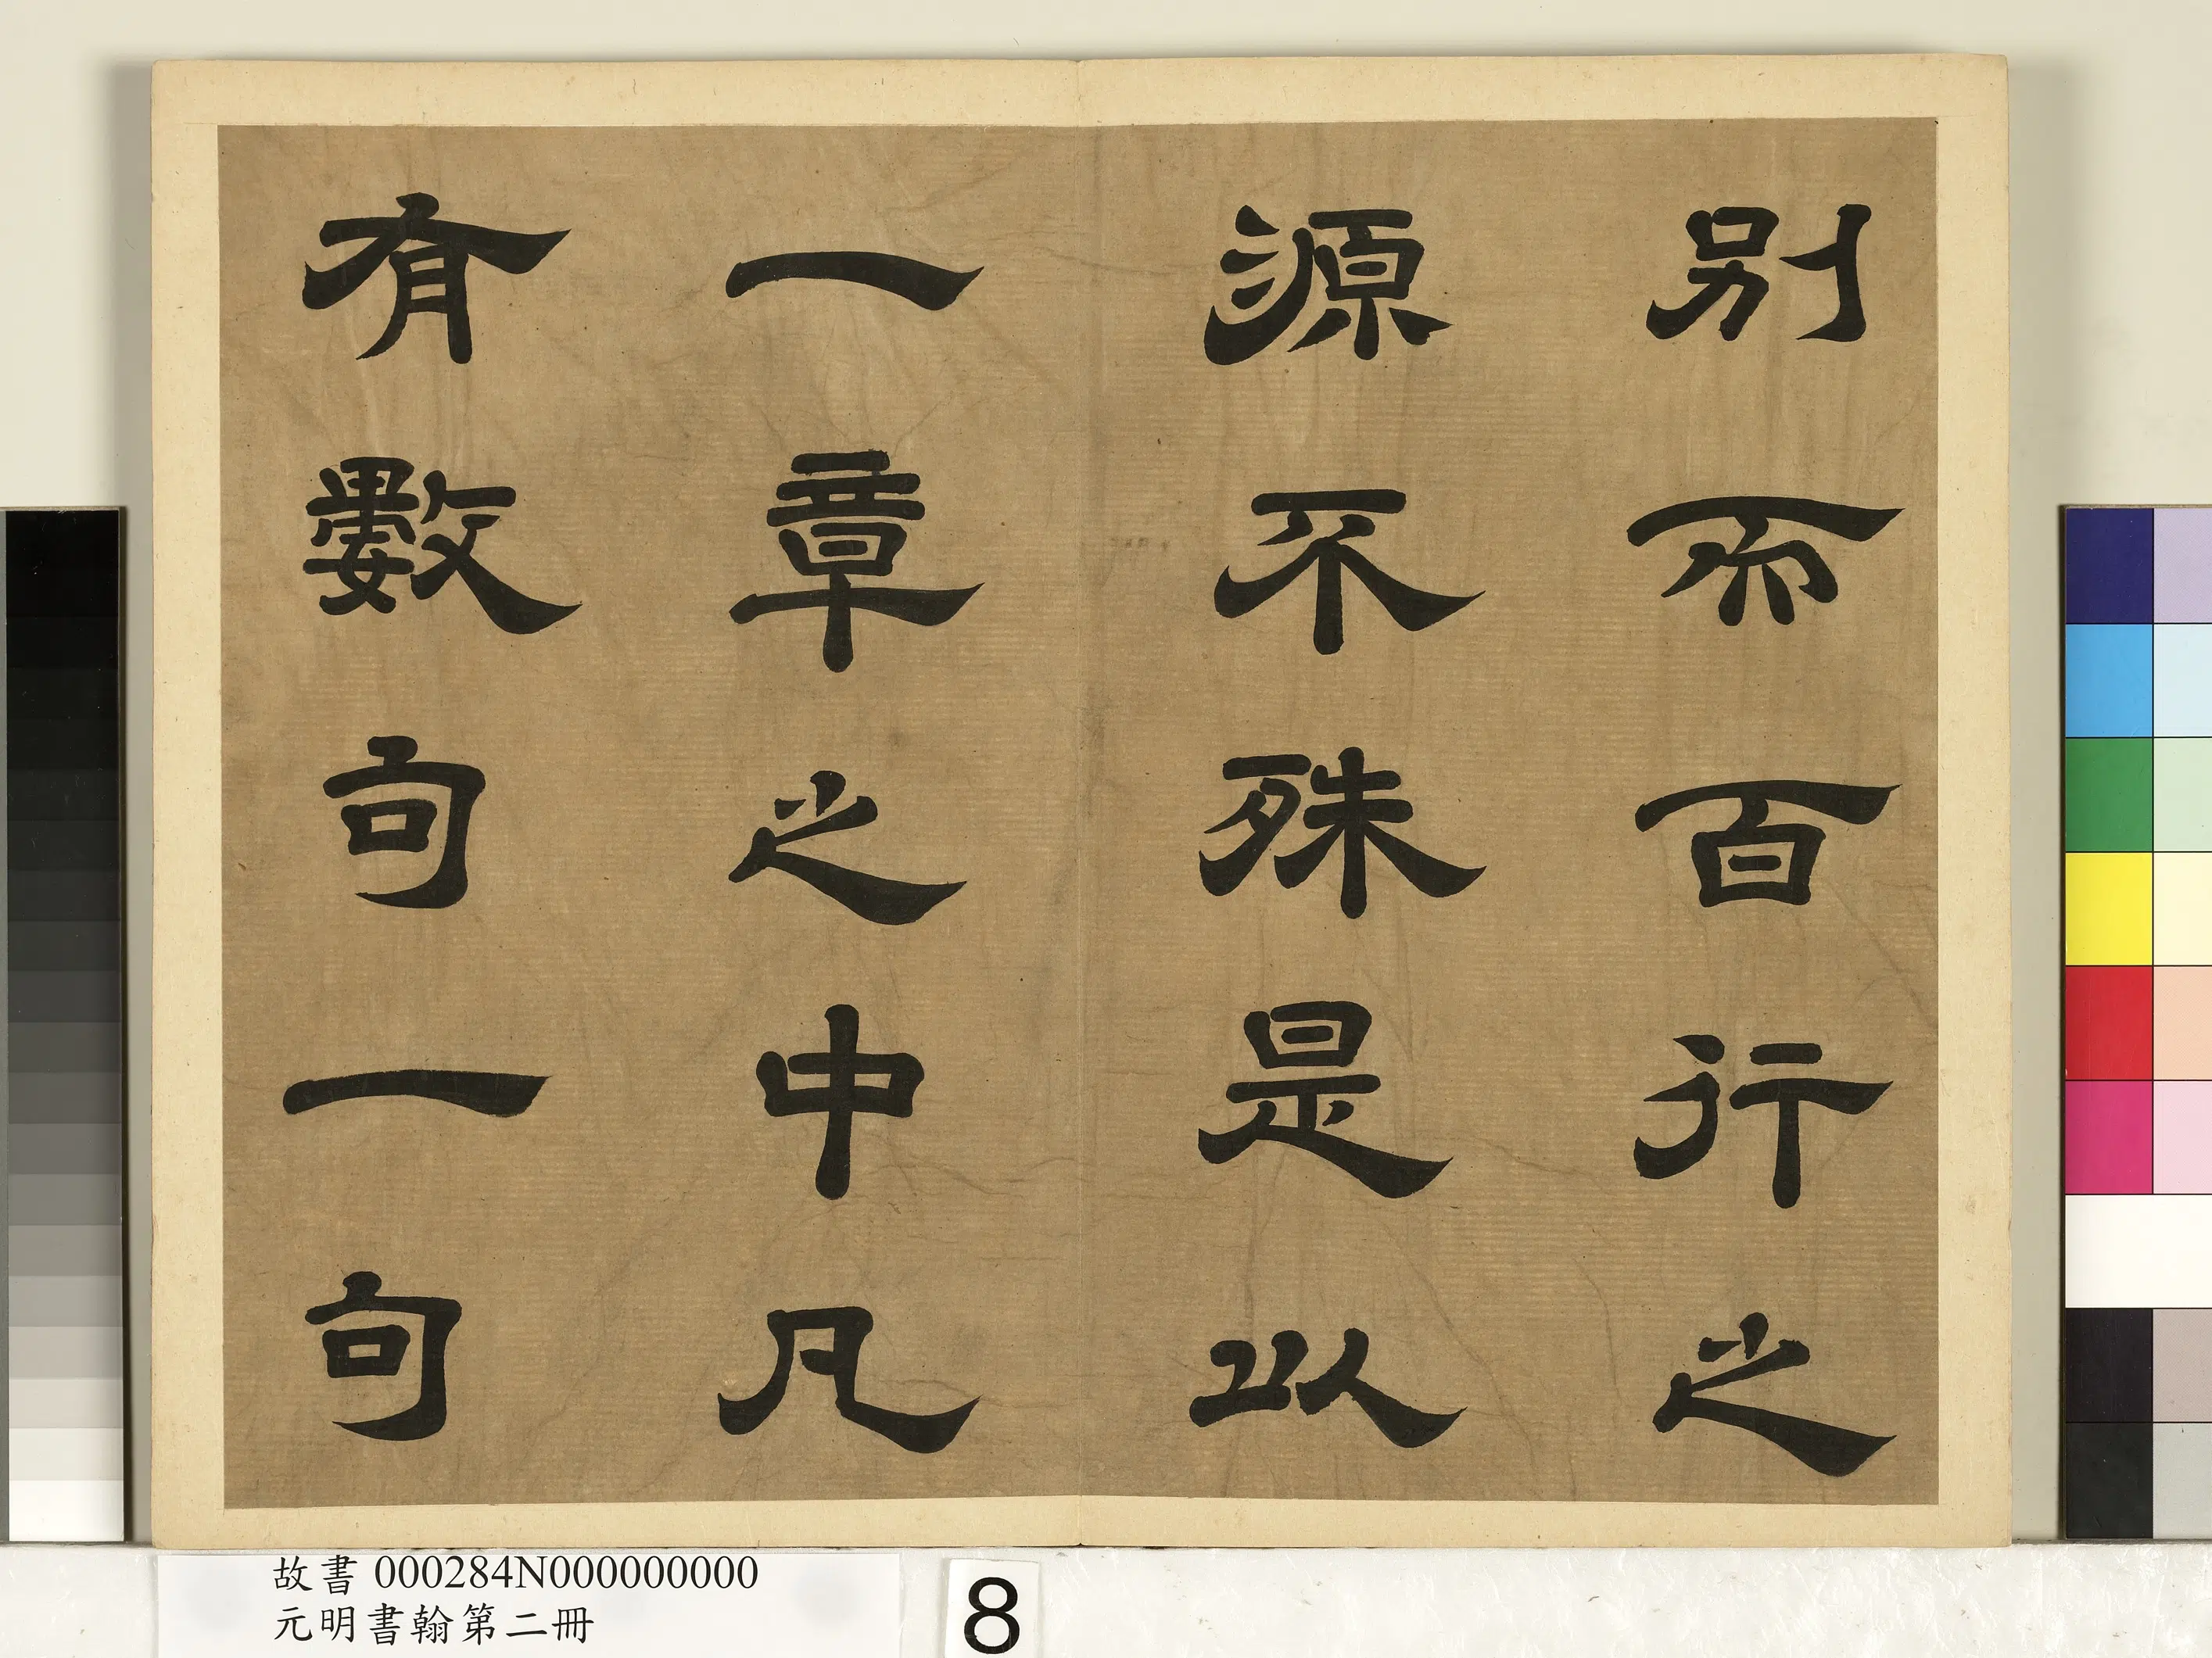 別而百行之
源不殊是以
一章之中凡
有數句一句
故書 000284N000000000
元明書翰第二冊
8